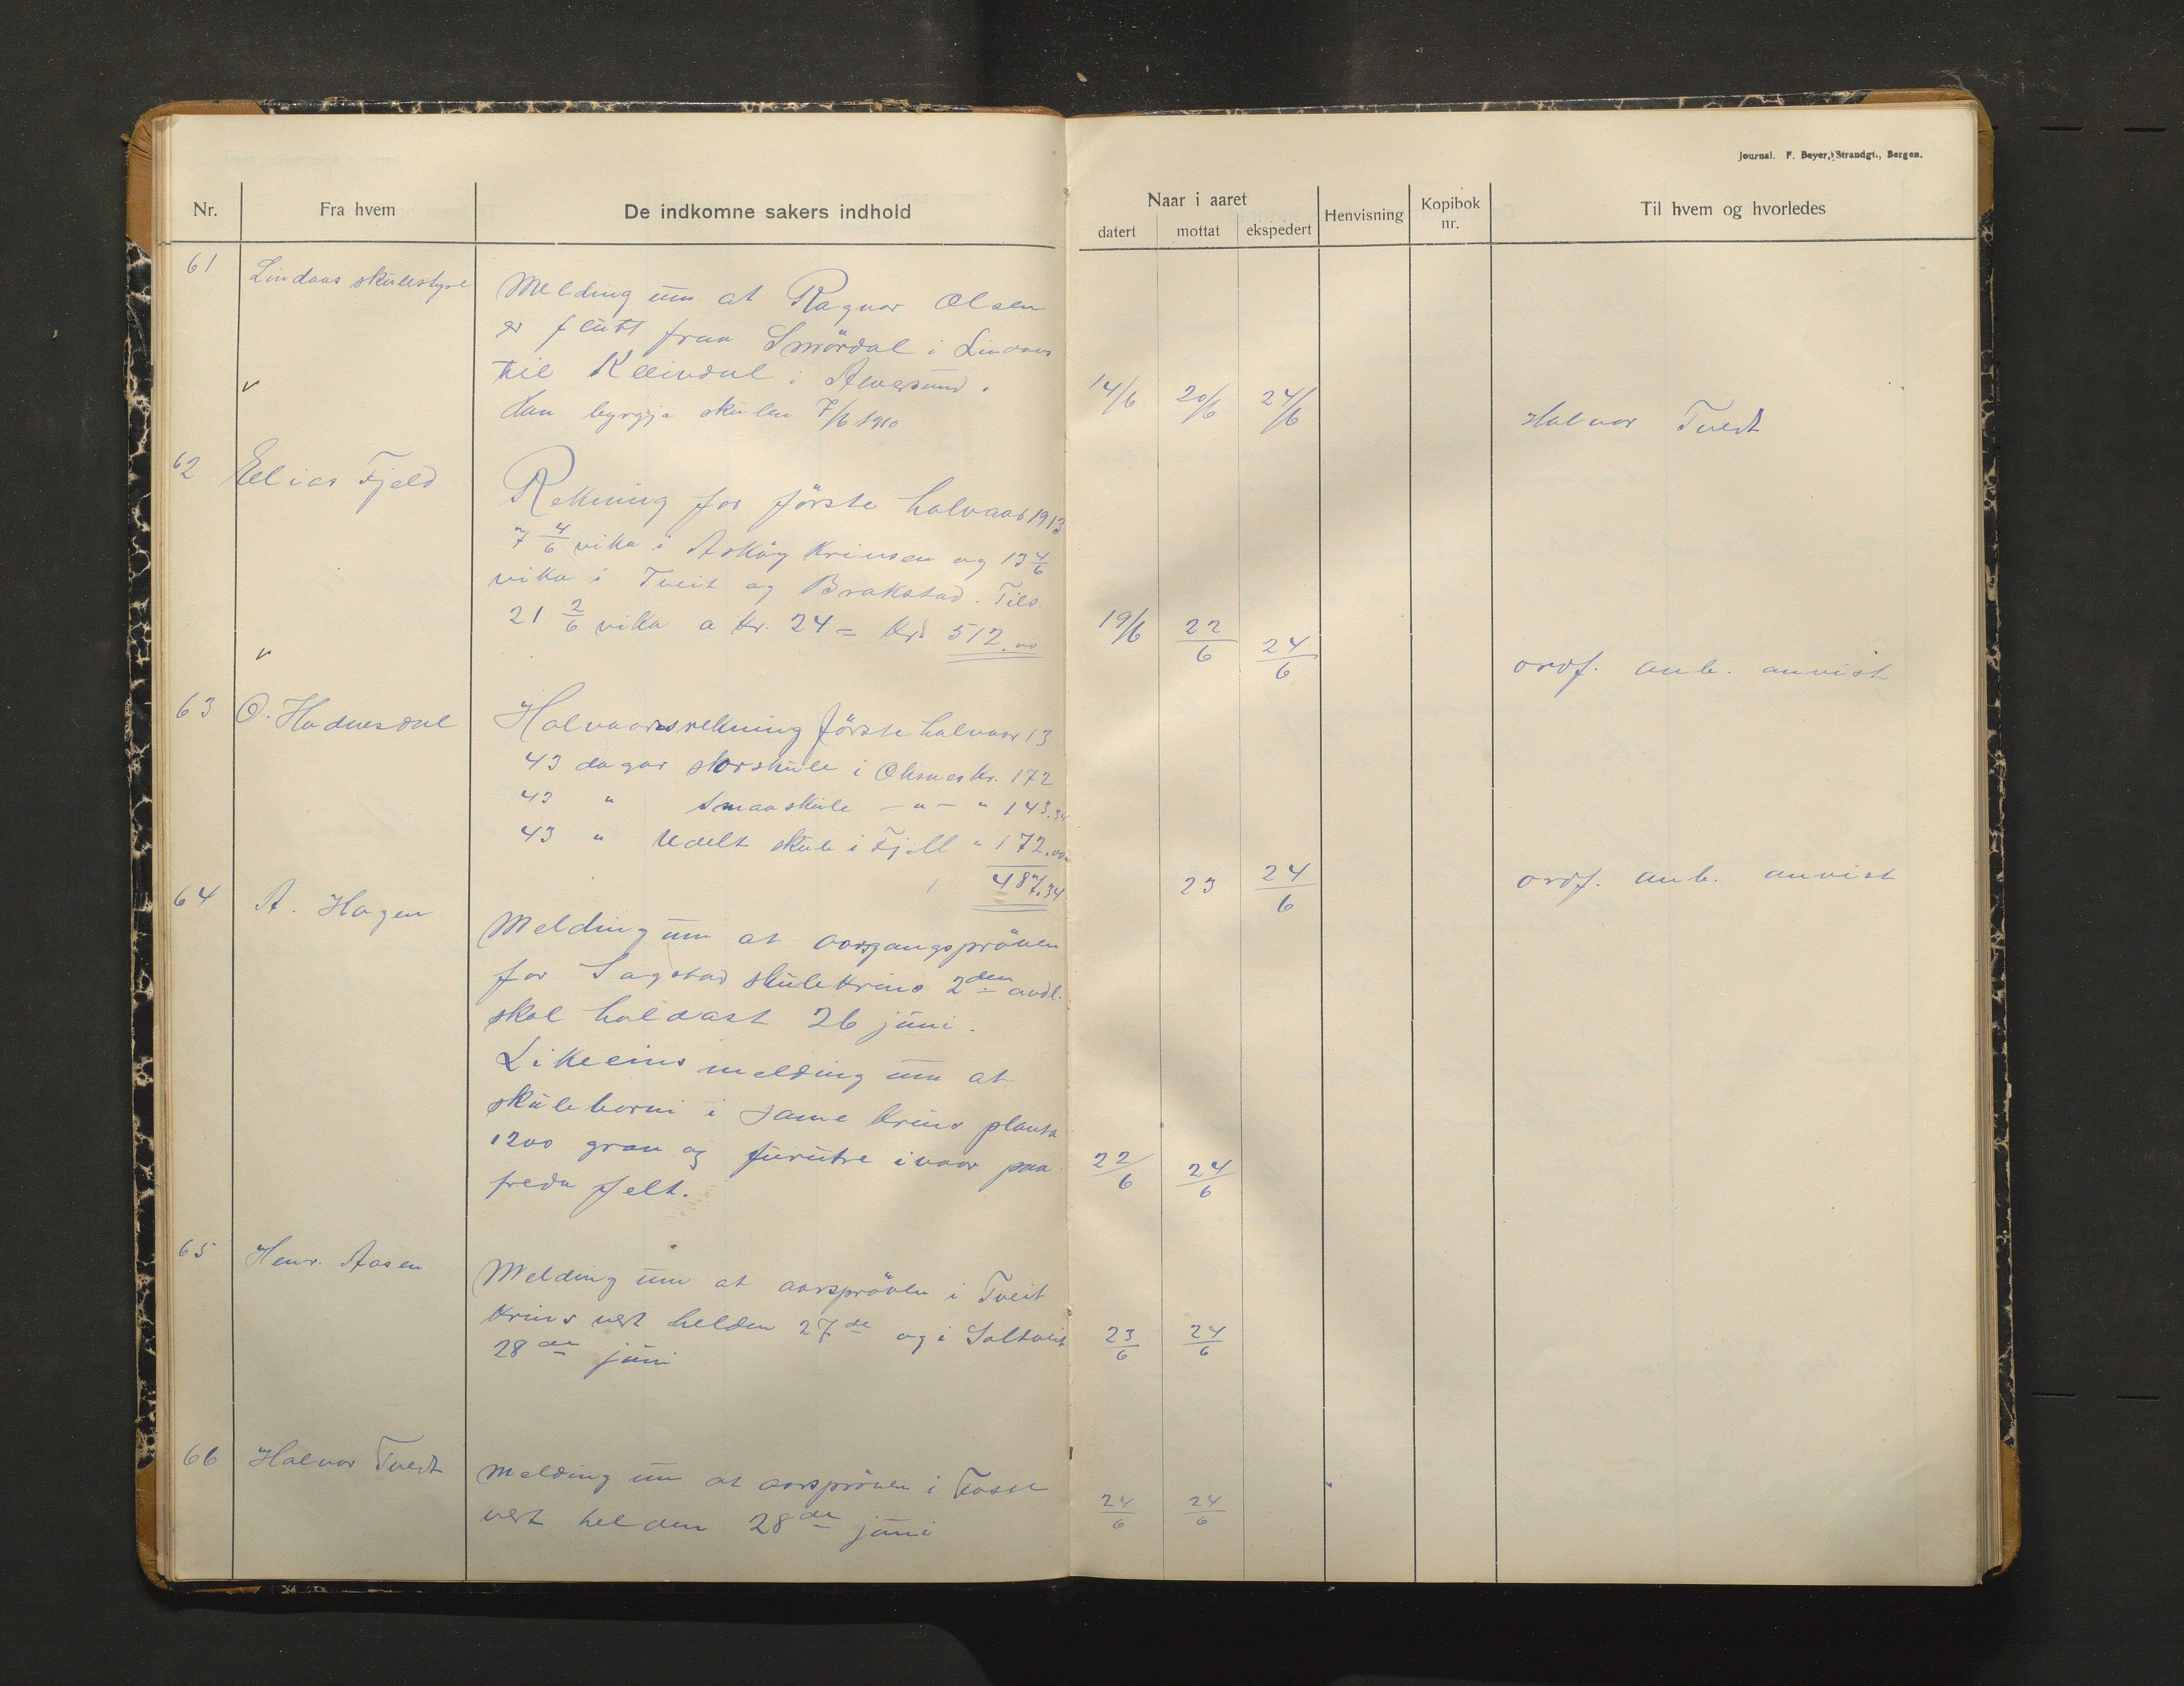 Journal. F. Beyer, Strandgt., Bergen.
Nr.
Fra hvem
De indkomne sakers indhold
Naar i aaret
datert
mottat
ekspedert
Henvisning
Kopibok nr.
Til hvem og hvorledes
61
Lindaas skulestyre
Melding um at Ragnar Olsen
er flutt fraa Smördal i Lindaas
til Kleivdal i Alversund.
Han byrgja skulen 7/6 1910
14/6
20/6
24/6
Halvor Tvedt
62
Elias Fjeld
Rekning for förste halvaar 1913
7 4/6 vika i Asköy krinsen og 13 4/6
vika i Tveit og Brakstad. Tils.
21 2/6 vika a kr. 24 = kr. 512.00
19/6
22/6
24/6
ordf. anb. anvist
63
O. Hodnesdal
Halvaarsrekning förste halvaar 13
43 dagar storskule i Oksnes kr. 172
43 " smaaskule — " — " 143.34
43 " Udelt skule i Fjell " 172.00
487.34
23
24/6
ordf. anb. anvist
64
A. Hagen
Melding um at aarsgangspröven
for Sagstad skulekrins 2den avdl.
skal haldast 26 juni.
Likeeins melding um at
skuleborni i same krins planta
1200 gran og furutre i vaar paa
freda felt.
22/6
24/6
65
Henr. Aasen
Melding um at aarspröven i Tveit
krins vert helden 27de og i Saltveit
28de juni
23/6
24/6
66
Halvor Tvedt
Melding um at aarspröven i Fosse
vert helden 28de juni
24/6
24/6